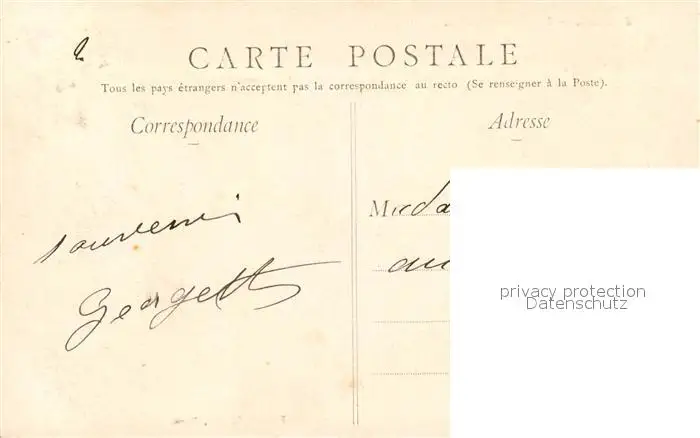 CARTE POSTALE
Tous les pays étrangers n'acceptent pas la correspondance au recto (Se renseigner à la Poste).
Correspondance
Adresse
souvenir
Georgette
M
privacy protection
Datenschutz